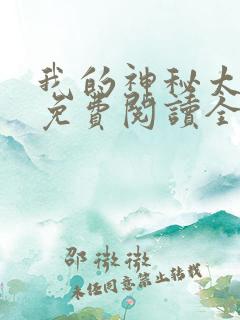 我的神秘大
免費閱讀全
邵微微
未任同意禁止转载